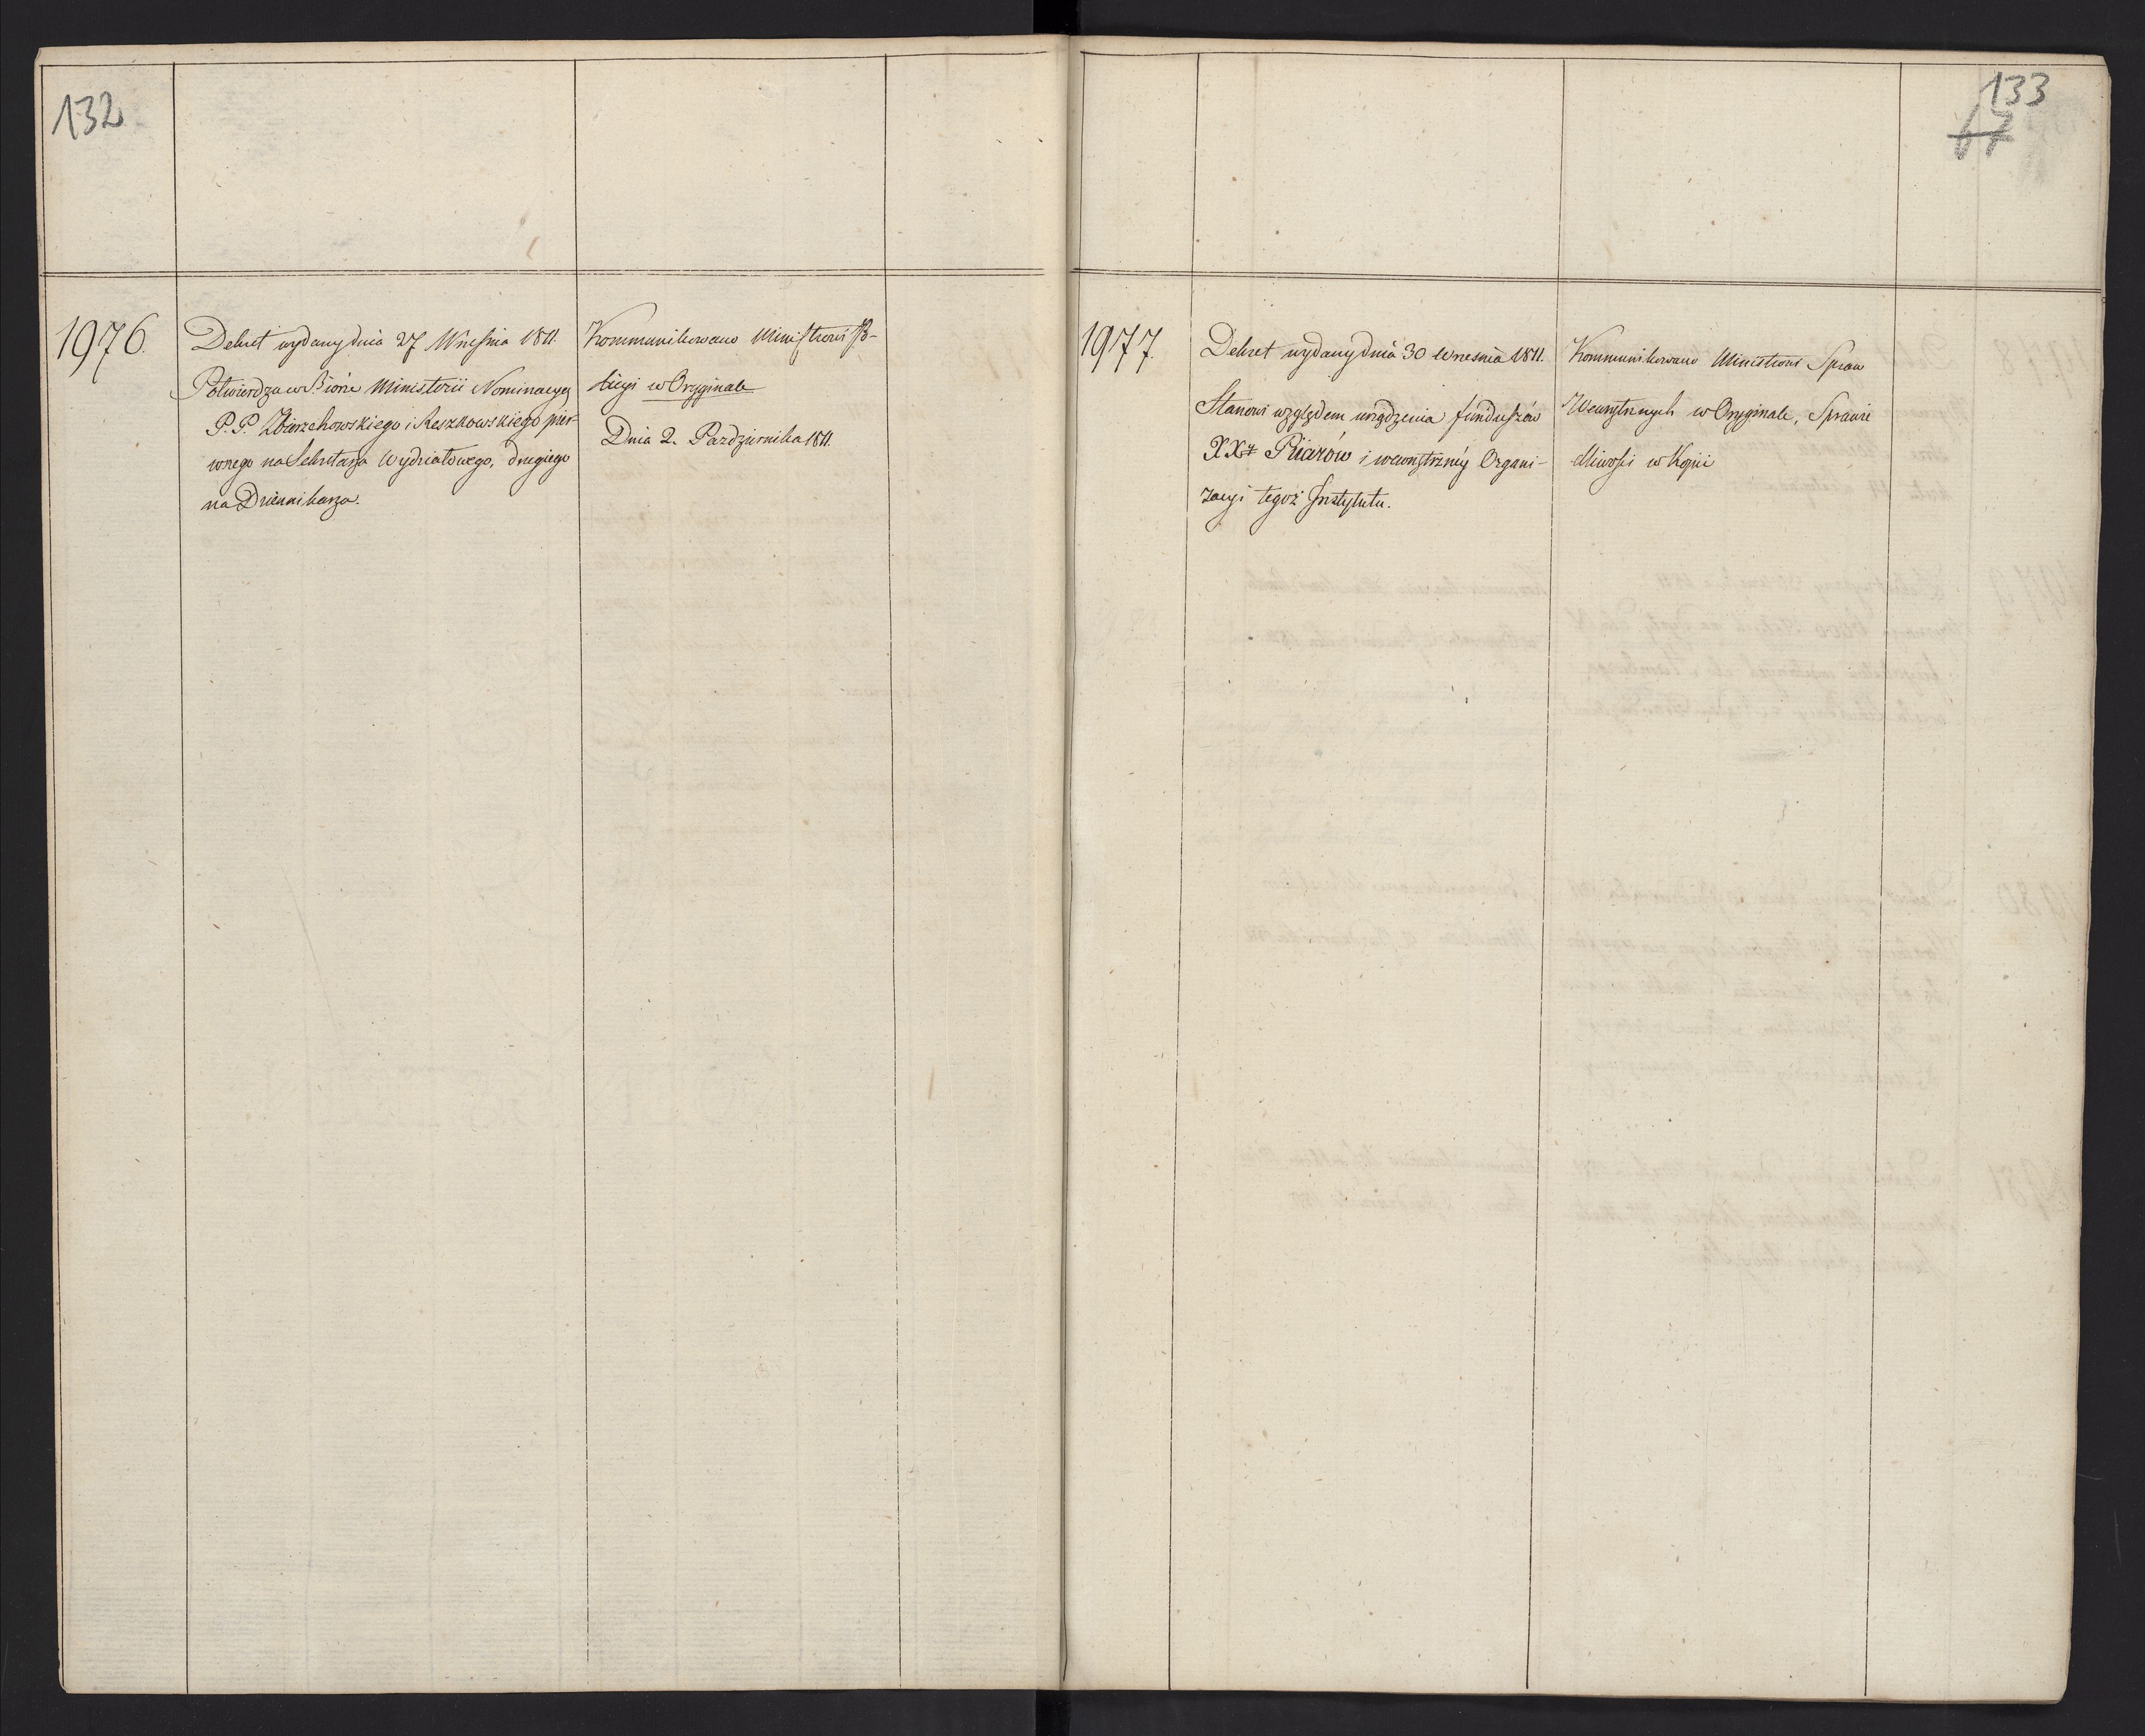 132
1976.
Dekret wydany dnia 27 Września 1811.
Potwierdza w Biórze Ministerii Nominacyą
P.P. Zbierzchowskiego i Reszkowskiego pier-
wszego na Sekretarza Wydziałowego, drugiego
na Dziennikarza.
Kommunikowano Ministrowi Po-
licyi w Oryginale
Dnia 2. Pazdziernika 1811.
133
67
1977.
Dekret wydany dnia 30 Wrzesnia 1811.
Stanowi względem urządzenia funduszów
XX. Piiarów i wewnętrzney Organi-
zacyi tegoż Instytutu.
Kommunikowano Ministrowi Spraw
Wewnętrznych w Oryginale, Sprawie
dliwości w Kopii